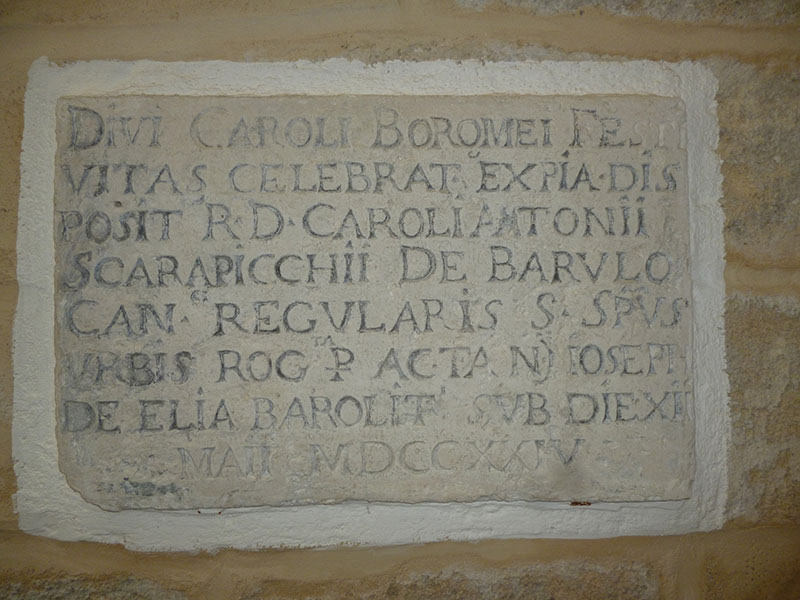 DIVI CAROLI BOROMEI FESTI
VITAS CELEBRATUR EX PIA DIS
POSIT R·D·CAROLI ANTONII
SCARAPICCHII DE BARVLO
CAN·CI REGVLARIS S·SPVS
VRBIS ROGTA P AC·TA NJ IOSEPH
DE ELIA BAROLIT SVB DIE XII
MAII MDCCXXIV